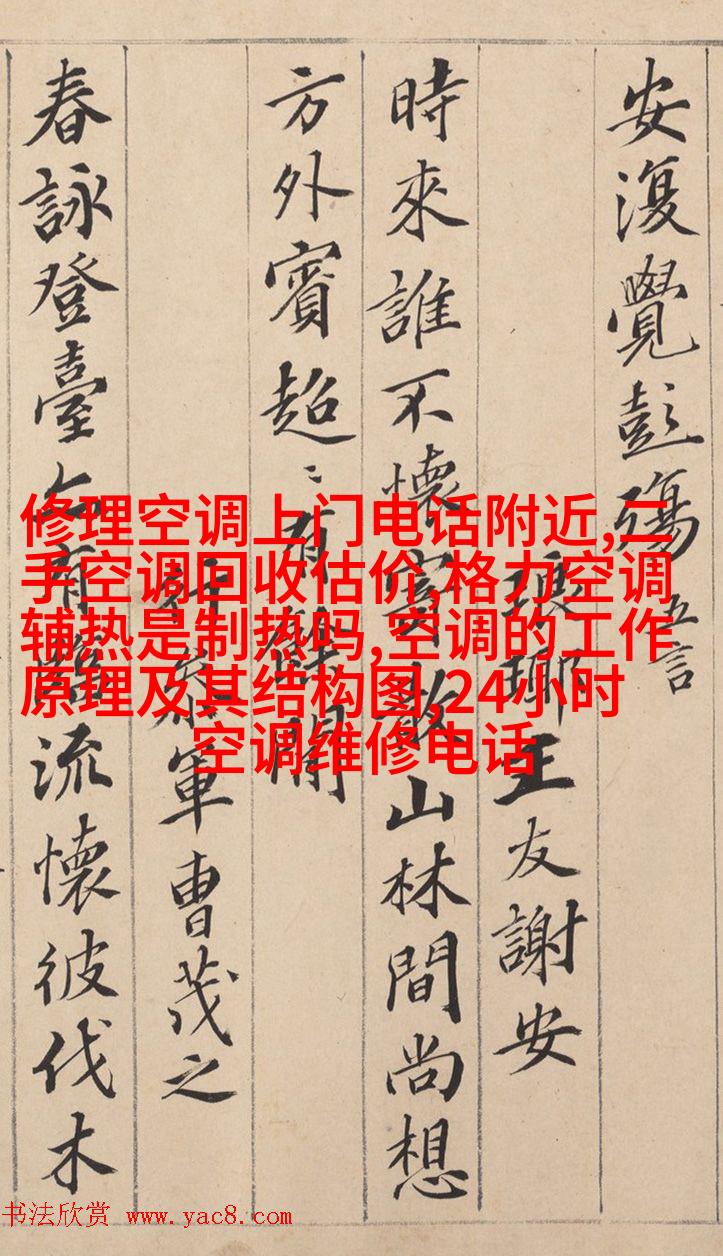 安復覺彭殤 五言
琅瑘王友謝安
時來誰不懷寄散山林間尚想
方外賓超〻有餘閒
行參軍曹茂之
春詠登臺亦有臨流懷彼伐木
修理空调上门电话附近,二
手空调回收估价,格力空调
辅热是制热吗,空调的工作
原理及其结构图,24小时
空调维修电话
书法欣赏 www.yac8.com